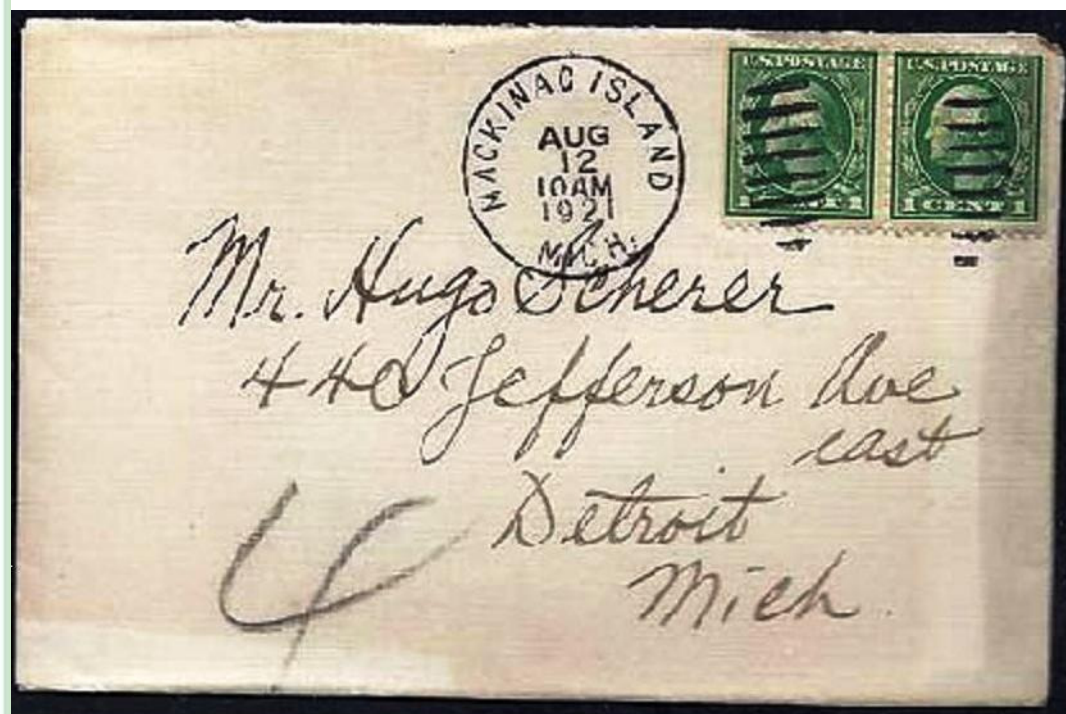 MACKINAC ISLAND
AUG
12
10AM
1921
MICH.
U.S. POSTAGE
1
1
U.S. POSTAGE
1 CENT 1
Mr. Hugo Scherer
440 Jefferson Ave
east
Detroit
Mich
4